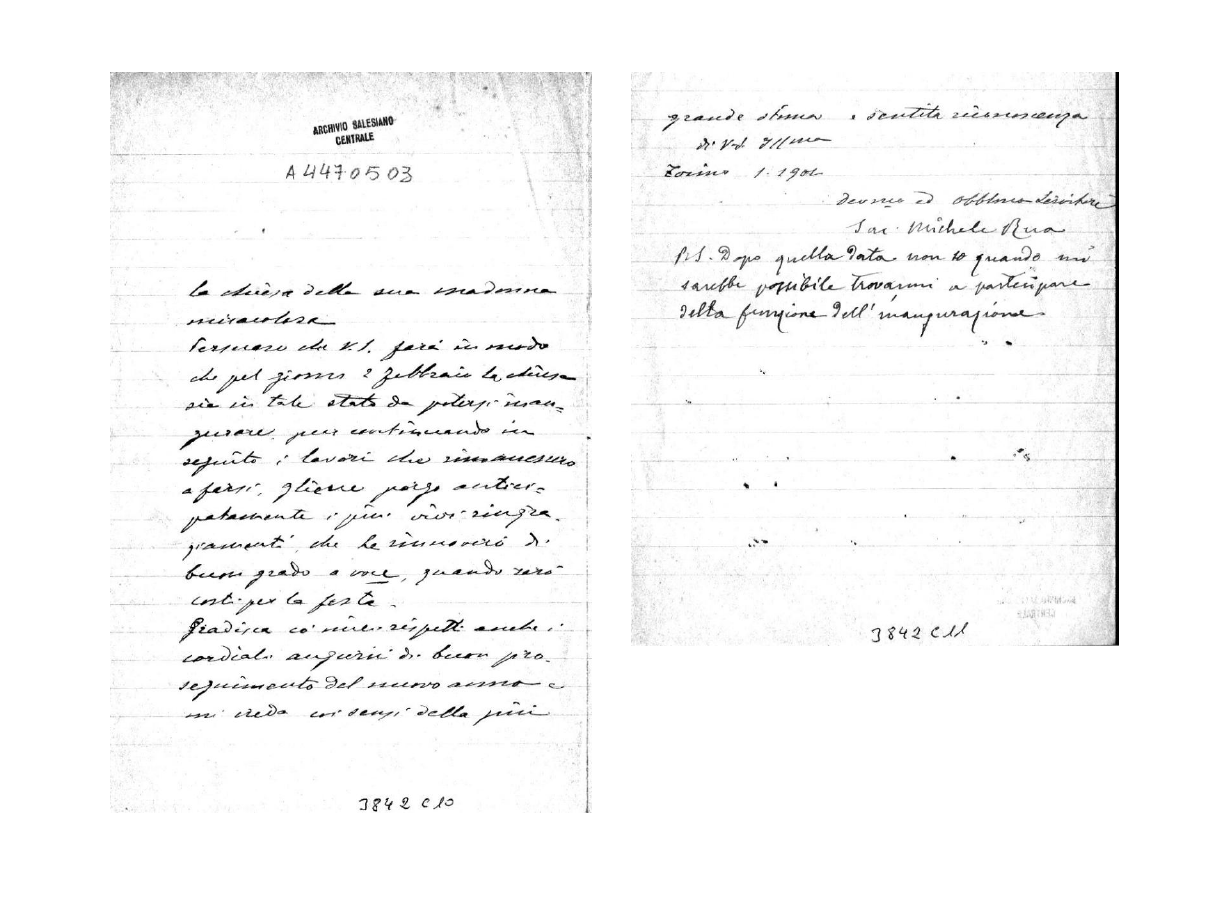 ARCHIVIO SALESIANO
CENTRALE
A4470503
la chiesa della sua madonna
miracolosa
Persuaso che V.S. farà in modo
che pel giorno 2 febbraio la chiesa
sia in tale stato da potersi inau=
gurare, pur continuando in
seguito i lavori che rimanessero
a farsi, gliene porgo antici=
patamente i più vivi ringra-
ziamenti, che Le rinnoverò di
buon grado a voce, quando sarò
costì per la festa.
Gradisca co' miei rispetti anche i
cordiali augurii di buon pro-
seguimento del nuovo anno e
mi creda coi sensi della più
3842 C10
grande stima e sentita riconoscenza
di V.S. Ill.ma
Torino 1. 1901
Dev.mo ed Obbl.mo Servitore
Sac. Michele Rua
P.S. Dopo quella data non so quando mi
sarebbe possibile trovarmi a partecipare
della funzione dell'inaugurazione.
3842 C11